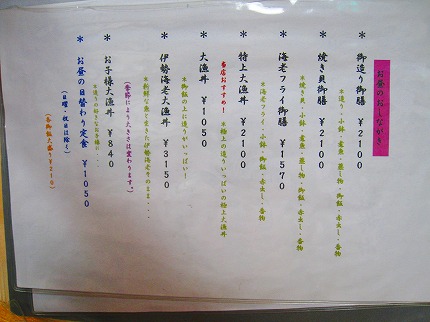 お昼のおしながき
* 御造り御膳 ¥2100
*造り・小鉢・煮魚・蒸し物・御飯・赤出し・香物
* 焼き貝御膳 ¥2100
*焼き貝・小鉢・煮魚・蒸し物・御飯・赤出し・香物
* 海老フライ御膳 ¥1570
*海老フライ・小鉢・御飯・赤出し・香物
* 特上大漁丼 ¥2100
当店おすすめ! *極上の造りいっぱいの特上大漁丼
* 大漁丼 ¥1050
*御飯の上に造りがいっぱい!
* 伊勢海老大漁丼 ¥3150
*新鮮な魚と生きた伊勢海老をそのまま・・・
(季節により大きさは変わります。)
* お子様大漁丼 ¥840
*造りの好きなお子様に・・・
* お昼の日替わり定食 ¥1050
(日曜・祝日は除く)
(各御飯大盛り¥210)